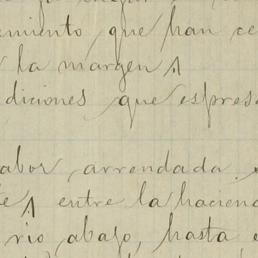 emiento que han ce
la margen ʌ
diciones que espres
abor arrendada.
ʌ entre la haciend
rio abajo, hasta e